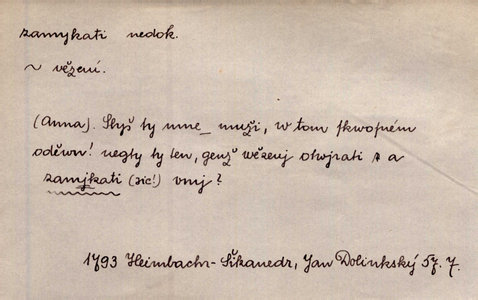 zamykati nedok.
~ vězení.
(Anna). Slyš ty mne_ muži, w tom skwostném
oděwu! negsy ty ten, genž wězenj otwjrati a
zamjkati (sic!) vmj?
1793 Heimbachr-Šikanedr, Jan Dolinkský 57.7.